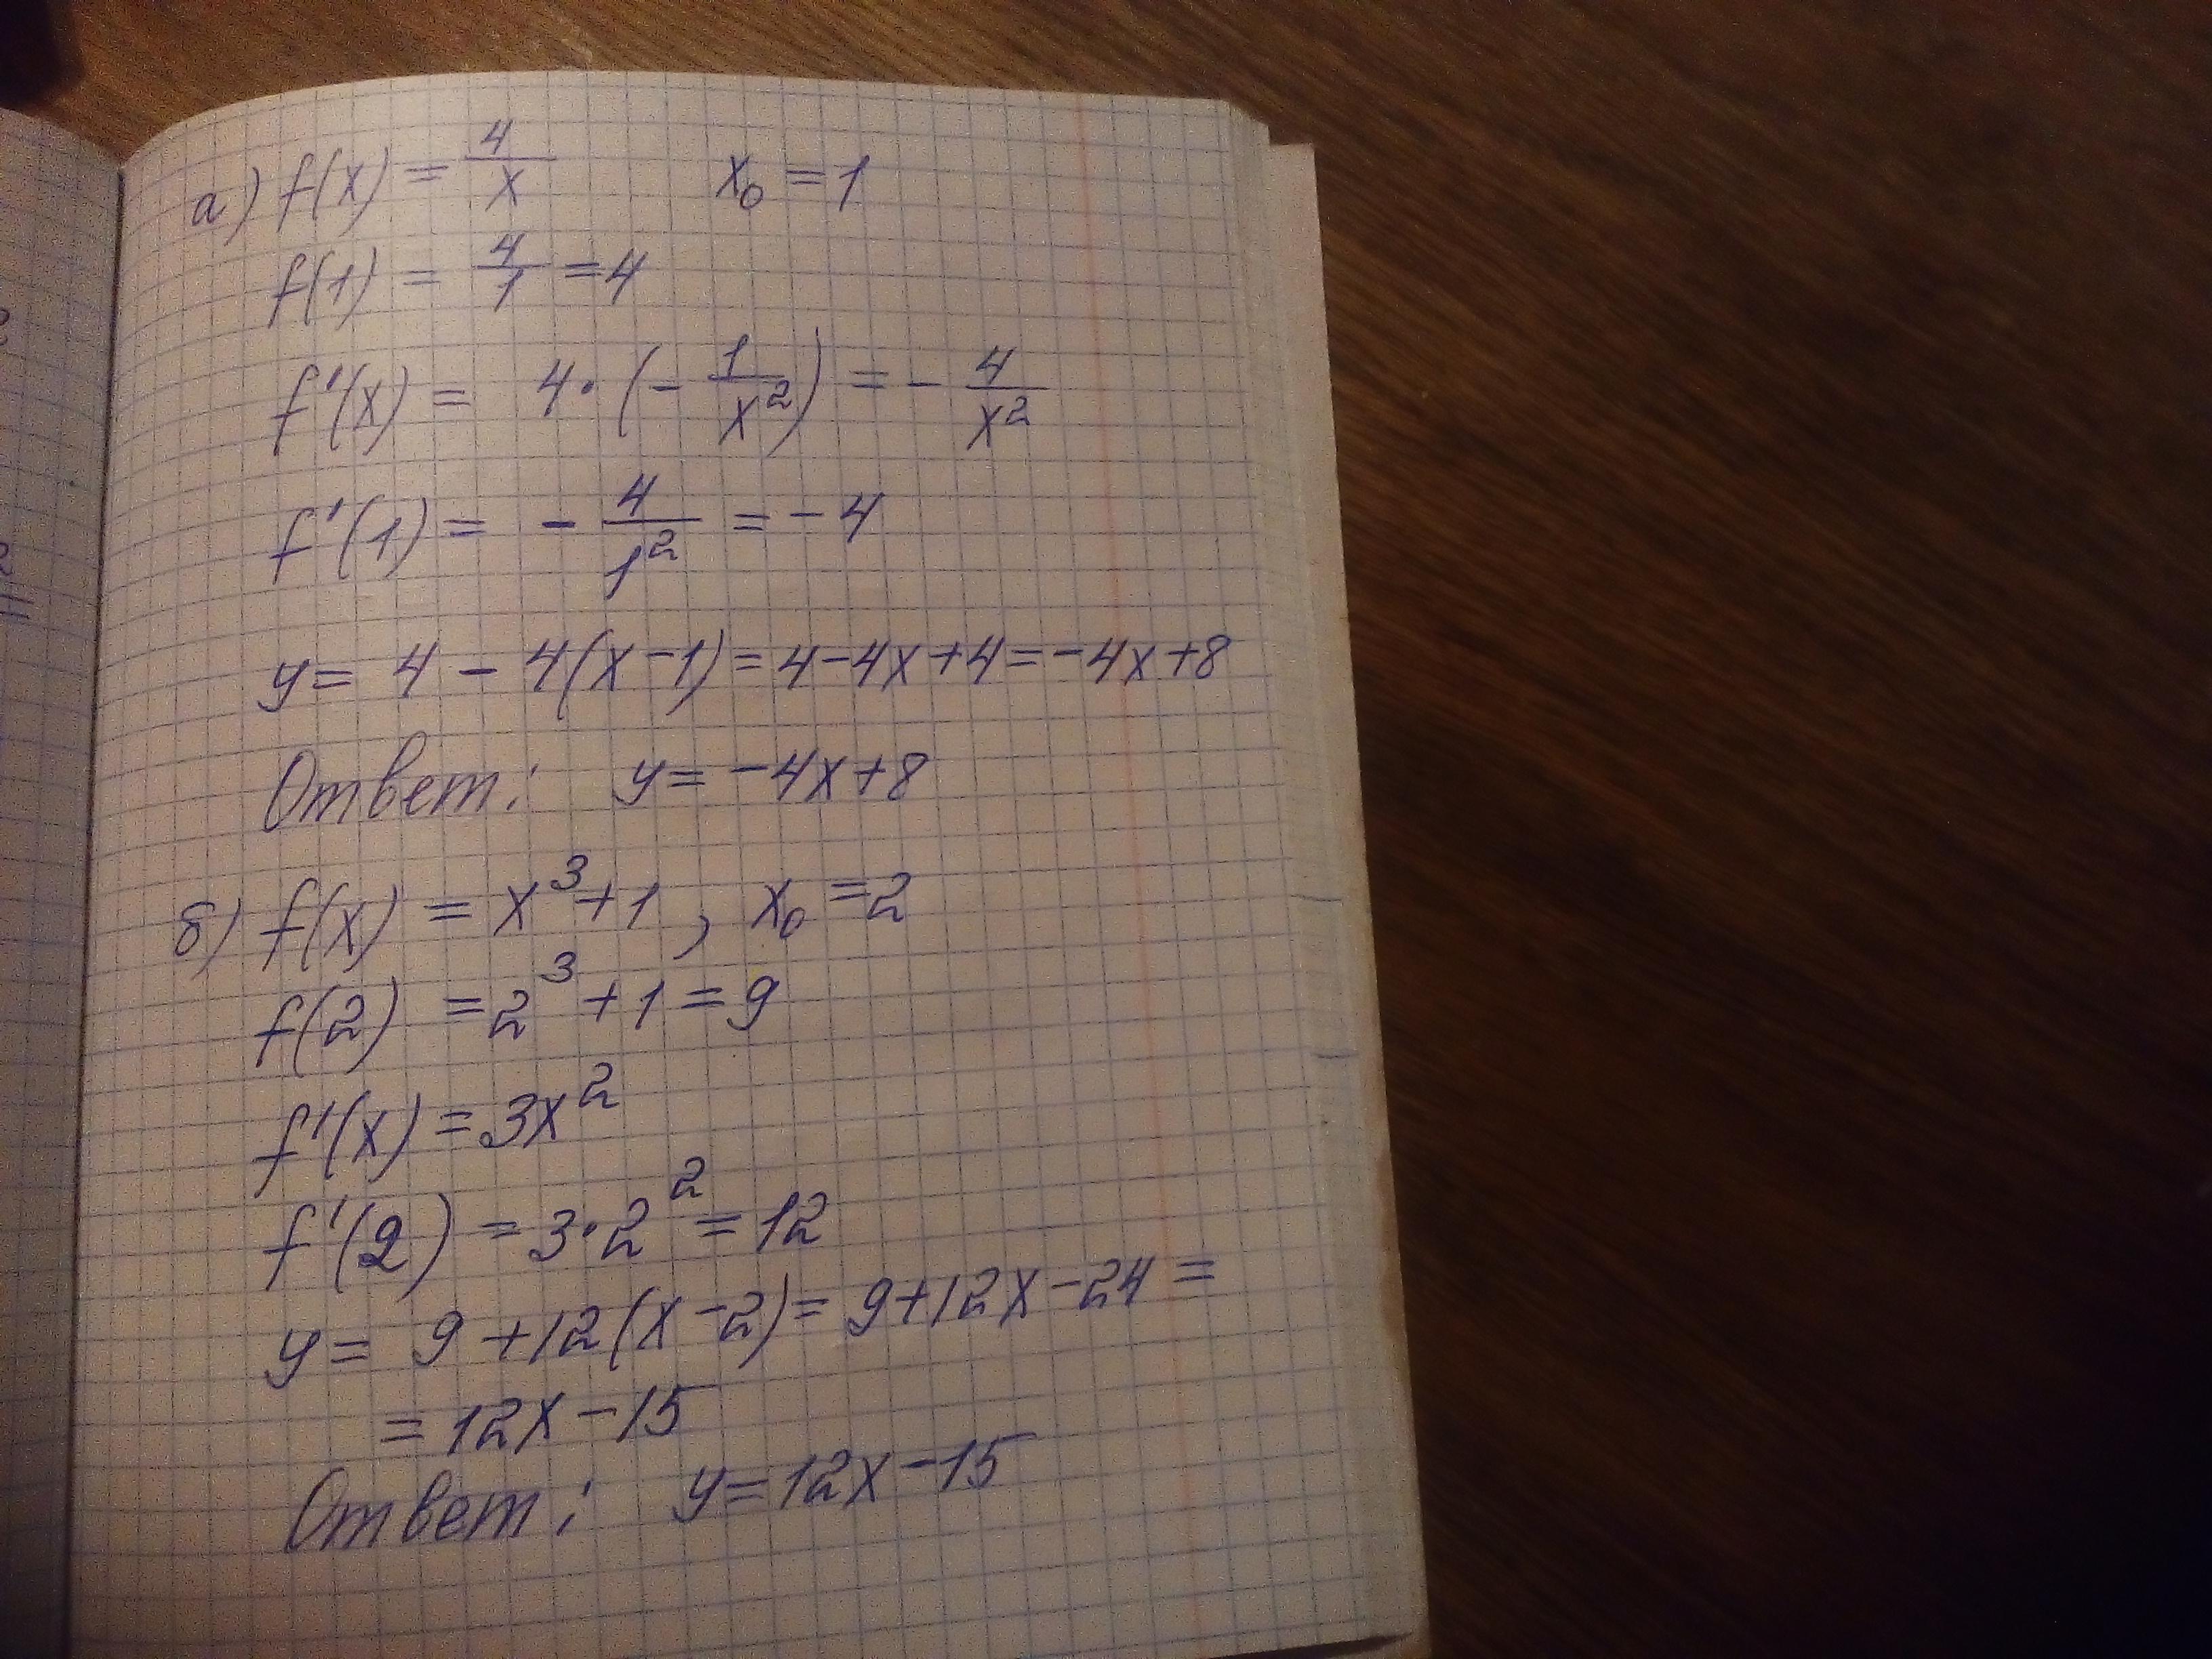 а) f(x) = 4/x x₀ = 1
f(1) = 4/1 = 4
f'(x) = 4·(- 1/x²) = - 4/x²
f'(1) = - 4/1² = - 4
y = 4 - 4(x-1) = 4-4x+4 = -4x+8
Ответ: y = -4x+8
б) f(x) = x³+1, x₀ = 2
f(2) = 2³+1 = 9
f'(x) = 3x²
f'(2) = 3·2² = 12
y = 9+12(x-2) = 9+12x-24 =
= 12x-15
Ответ: y = 12x-15